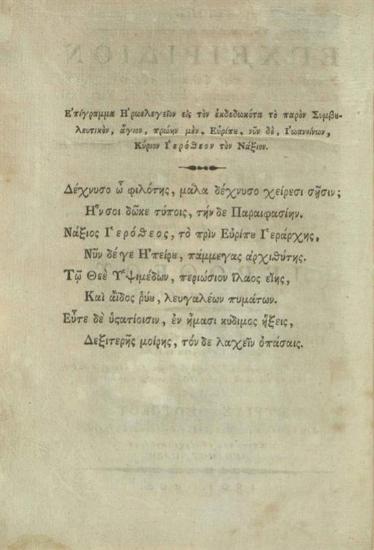 Ἐπίγραμμα Ἡρωελεγεῖον εἰς τὸν ἐκδεδωκότα τὸ παρὸν Συμβȣ-
λευτικὸν, ἅγιον, πρώην μὲν, Εὐρίπȣ, νῦν δὲ, Ἰωαννίνων,
Κύριον Ἱερόθεον τὸν Νάξιον.
Δέχνυσο ὦ φιλότης, μάλα δέχνυσο χείρεσι σῇσιν;
Ἥν σοι δῶκε τύποις, τήν δε Παραιφασίην.
Νάξιος Ἱερόθεος, τὸ πρὶν Εὐρίπȣ Ἱεράρχης,
Νῦν δέ γε Ἠπείρȣ, πάμμεγας ἀρχιθύτης.
Τῷ Θεὲ Ὑψιμέδων, περιώσιον ἵλαος εἴης,
Καὶ ἄϊδος ῥύȣ, λευγαλέων πυμάτων.
Εὖτε δὲ ὑςατίοισιν, ἐν ἤμασι κύδιμος ἥξεις,
Δεξιτερῆς μοίρης, τόν δε λαχεῖν ὀπάσαις.